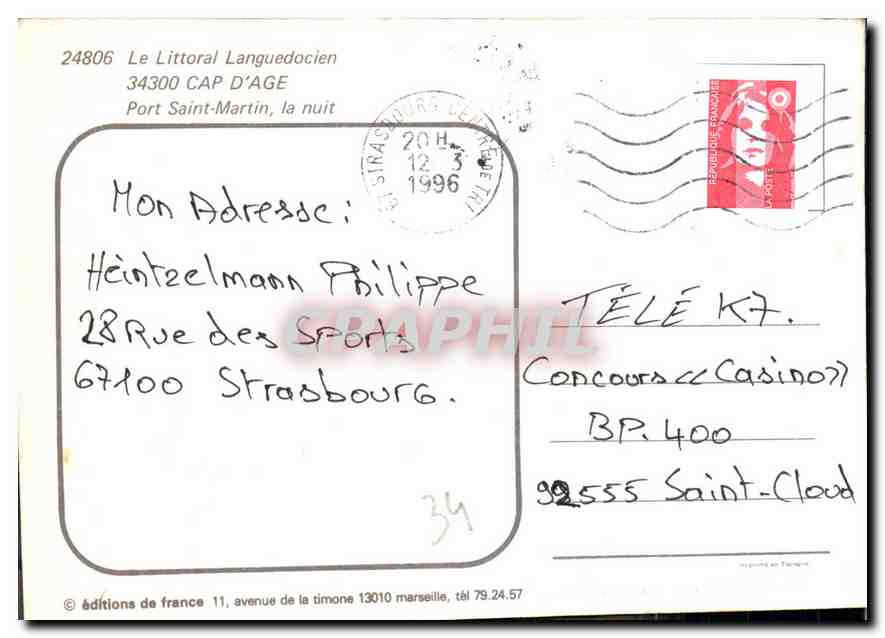 24806 Le Littoral Languedocien
34300 CAP D'AGE
Port Saint-Martin, la nuit
67 STRASBOURG CENTRE DE TRI
20 H
12 3
1996
REPUBLIQUE FRANÇAISE
LA POSTE
Mon Adresse :
Heintzelmann Philippe
28 Rue des Sports
67100 Strasbourg.
CPARAMA
TÉLÉ K7.
Concours << Casino >>
BP. 400
92555 Saint-Cloud
34
Imprimé en Espagne
© éditions de france 11, avenue de la timone 13010 marseille, tél 79.24.57